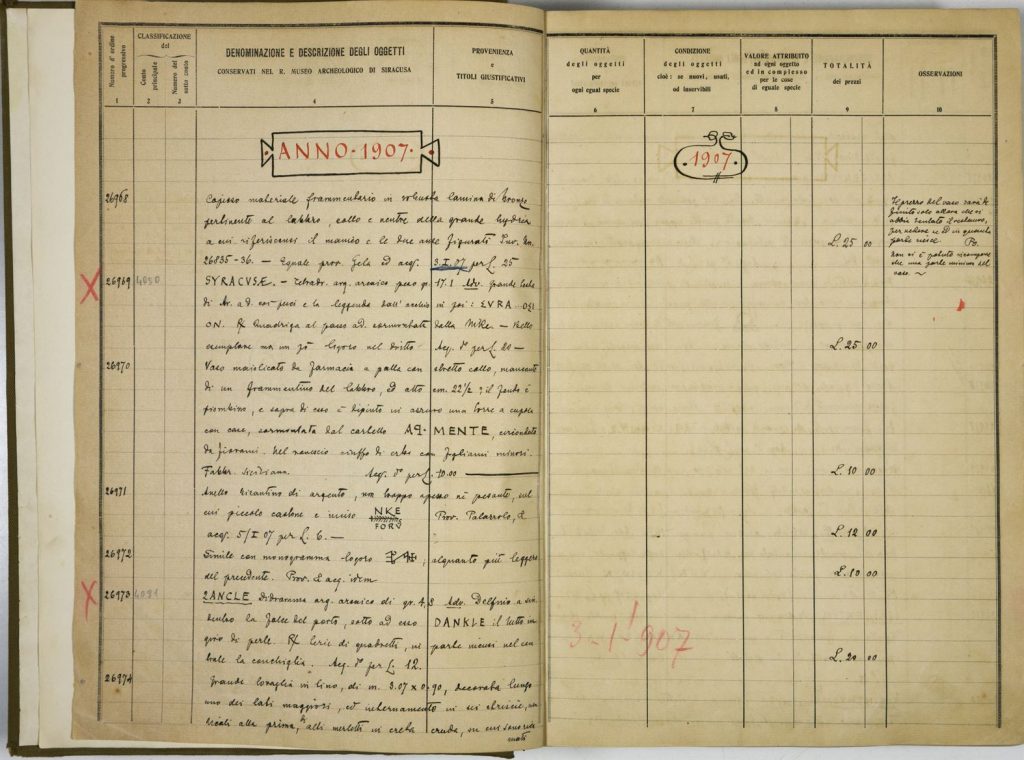 Numero d'ordine progressivo
CLASSIFICAZIONE
del
Conto principale
Numero del sotto conto
DENOMINAZIONE E DESCRIZIONE DEGLI OGGETTI
CONSERVATI NEL R. MUSEO ARCHEOLOGICO DI SIRACUSA
PROVENIENZA
e
TITOLI GIUSTIFICATIVI
1 2 3 4 5
ANNO · 1907 ·
26968
Copioso materiale frammentario in robusta lamina di bronzo
pertinente al labbro, collo e ventre della grande hydria
a cui riferisconsi il manico e le due anse figurati Inv. Nn.
26835-36. — Eguale prov. Gela ed acq. 3.I.07 per L. 25
26969 4050
SYRACVSÆ. — Tetradr. arg. arcaico peso gr. 17.1 Adv. Grande testa
di Ar. a d. con la leggenda dall' in poi: ΣVRA .. OΣI
ON. R Quadriga al passo a d. sormontata dalla Nike. — Bello
esemplare ma un pò logoro nel dritto. Acq. d° per L. 20 —
26970
Vaso maiolicato da farmacia a palla con stretto collo, mancante
di un frammentino del labbro, ed alto cm. 22½; il fondo è
piombino, e sopra di esso è dipinto in azzurro una torre a cupola
con case, sormontata dal cartello AQ · MENTE, circondato
da fiorami. Nel rovescio ciuffo di erbe con fogliami minori.
Fabbr. siciliana. Acq. d° per L. 10.00
26971
Anello bizantino di argento, non troppo spesso nè pesante, sul
cui piccolo castone è inciso NKE FORV Prov. Palazzolo, &
acq. 5/I 07 per L. 6. —
26972
Simile con monogramma logoro ; alquanto più leggero
del precedente. Prov. & acq. idem
26973 4091
ZANCLE Didramma arg. arcaico di gr. Adv. Delfino a sin.
dentro la falce del porto, sotto ad esso DANKLE il tutto in
giro di perle. R Serie di quadretti, in parte incusi nel cen
trale la conchiglia. Acq. d° per L. 12.
26974
Grande tovaglia in lino, di m. 3.07 x 0.90, decorata lungo
uno dei lati maggiori, ed internamento in sei striscie,
alla prima, altri merletti in creta cruda, su cui sono
QUANTITÀ
degli oggetti
per
ogni egual specie
CONDIZIONE
degli oggetti
cioè: se nuovi, usati,
od inservibili
VALORE ATTRIBUITO
ad ogni oggetto
ed in complesso
per le cose
di eguale specie
TOTALITÀ
dei prezzi
OSSERVAZIONI
6 7 8 9 10
· 1907 ·
L. 25 00
Il prezzo del vaso sarà de
finito solo allora che si
abbia tentato il restauro,
per vedere se ed in quanta
parte riesce.
non si è potuto ricomporre
che una parte minima del
vaso.
L. 25 00
L. 10 00
L. 12 00
L. 10 00
3-1-1907
L. 20 00